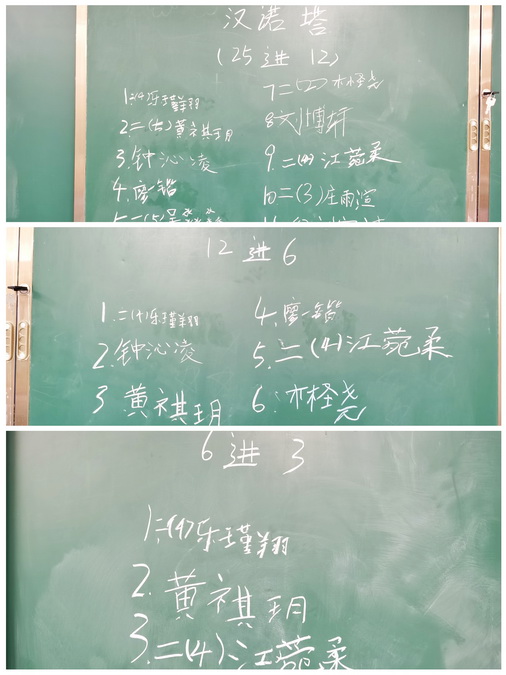 汉诺塔
(25进12)
1.二(4)乐瑾翔
2.二(五)黄祺玥
3.钟沁凌
4.廖一锴
5.二(5)吴
7.二(四)林怪尧
8.刘博轩
9.二(四)江菀柔
10.二(3)庄雨渲
12进6
1.二(4)乐瑾翔
2.钟沁凌
3 黄祺玥
4.廖一锴
5.二(4)江菀柔
6.林怪尧
6进3
1.二(4)乐瑾翔
2.黄祺玥
3.二(4)江菀柔